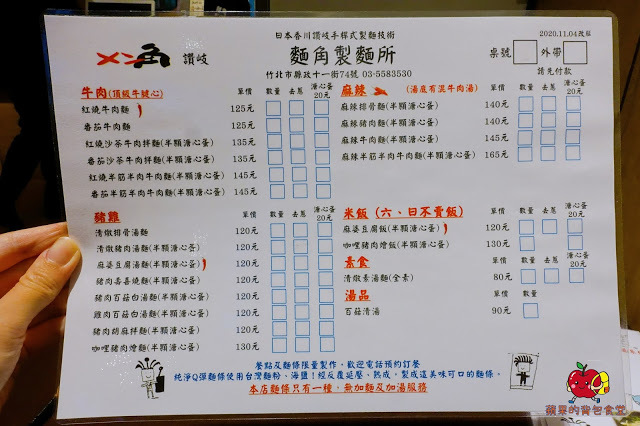 日本香川讚岐手桿式製麵技術
2020.11.04改版
メン角 讚岐
麵角製麵所
桌號 外帶
竹北市縣政十一街74號 03-5583530
請先付款
牛肉(頂級牛腱心) 單價 數量 去蔥 溏心蛋20元
紅燒牛肉麵 125元
番茄牛肉麵 125元
紅燒沙茶牛肉拌麵(半顆溏心蛋) 135元
番茄沙茶牛肉拌麵(半顆溏心蛋) 135元
紅燒半筋半肉牛肉麵(半顆溏心蛋) 145元
番茄半筋半肉牛肉麵(半顆溏心蛋) 145元
麻辣 (湯底有混牛肉湯) 單價 數量 去蔥 溏心蛋20元
麻辣排骨麵(半顆溏心蛋) 140元
麻辣豬肉麵(半顆溏心蛋) 140元
麻辣牛肉麵(半顆溏心蛋) 145元
麻辣半筋半肉牛肉麵(半顆溏心蛋) 165元
豬雞 單價 數量 去蔥 溏心蛋20元
清燉排骨湯麵 120元
清燉豬肉湯麵(半顆溏心蛋) 120元
麻婆豆腐湯麵(半顆溏心蛋) 120元
豬肉壽喜燒麵(半顆溏心蛋) 120元
豬肉百菇白湯麵(半顆溏心蛋) 120元
雞肉百菇白湯麵(半顆溏心蛋) 120元
豬肉胡麻拌麵(半顆溏心蛋) 120元
咖哩豬肉燴麵(半顆溏心蛋) 130元
米飯(六、日不賣飯) 單價 數量 去蔥 溏心蛋20元
麻婆豆腐飯(半顆溏心蛋) 120元
咖哩豬肉燴飯(半顆溏心蛋) 130元
素食 單價 數量 去蔥 溏心蛋20元
清燉素湯麵(全素) 80元
湯品 單價 數量
百菇清湯 90元
餐點及麵條限量製作，歡迎電話預約訂餐
純淨Q彈麵條使用台灣麵粉、海鹽！經反覆延壓、熟成，製成這美味可口的麵條。
本店麵條只有一種，無加麵及加湯服務
蘋果的背包食堂